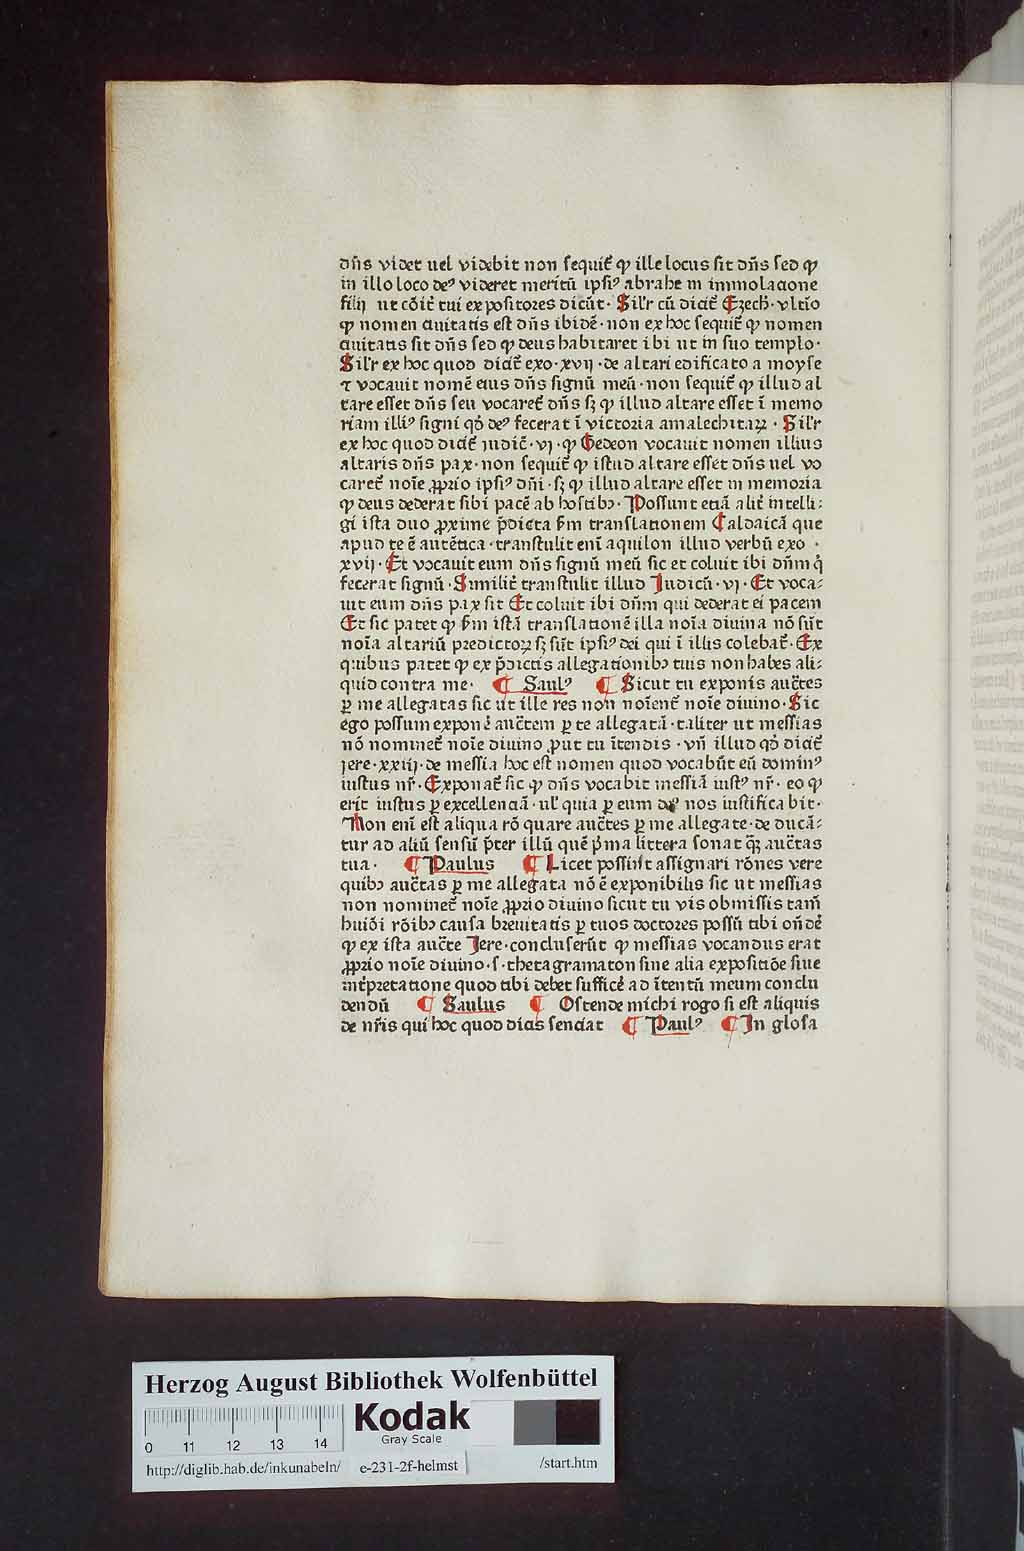 dn̄s videt uel videbit non sequit̄ ꝙ ille locus sit dn̄s sed ꝙ
in illo loco deꝰ videret meritū ipsiꝰ abrahe in immolacione
filij ut cōit̄ tui expositores dicūt· Sil'r cū dicit̄ Ezech̄· vltīo
ꝙ nomen ciuitatis est dn̄s ibidē· non ex hoc sequit̄ ꝙ nomen
ciuitatis sit dn̄s sed ꝙ deus habitaret ibi ut in suo templo·
Sil'r ex hoc quod dicit̄ exo·xvij·de altari edificato a moyse
⁊ vocauit nomē eius dn̄s signū meū·non sequit̄ ꝙ illud al
tare esset dn̄s seu vocaret̄ dn̄s sꝫ ꝙ illud altare esset ī memo
riam illiꝰ signi qđ deꝰ fecerat ī victoria amalechitaꝝ · Sil'r
ex hoc quod dicit̄ iudic̄·vj·ꝙ Gedeon vocauit nomen illius
altaris dn̄s pax·non sequit̄ ꝙ istud altare esset dn̄s uel vo
caret̄ noīe ꝓprio ipsiꝰ dn̄i·sꝫ ꝙ illud altare esset in memoria
ꝙ deus dederat sibi pacē ab hostibꝫ· Possunt eciā alit̄ intelli⸗
gi ista duo ꝓxime p̄dicta s̄m translationem Caldaicā que
apud te ē autētica·transtulit enī aquilon illud verbū exo ·
xvij·Et vocauit eum dn̄s signū meū sic et coluit ibi dn̄m q'
fecerat signū·Similit̄ transtulit illud Iudicū·vj·Et voca⸗
uit eum dn̄s pax sit Et coluit ibi dn̄m qui dederat ei pacem
Et sic patet ꝙ s̄m istā translationē illa noīa diuina nō sūt
noīa altariū predictoꝝ sꝫ sūt ipsiꝰ dei qui ī illis colebat̄·Ex
quibus patet ꝙ ex p̄dictis allegationibꝫ tuis non habes ali⸗
quid contra me· ¶ Saulꝰ ¶ Sicut tu exponis auc̄tes
ꝑ me allegatas sic ut ille res non noīent̄ noīe diuino·Sic
ego possum expone' auc̄tem ꝑ te allegatā·taliter ut messias
nō nominet̄ noīe diuino ꝓut tu ītendis·vn̄ illud qđ dicit̄
iere·xxiij·de messia hoc est nomen quod vocabūt eū dominꝰ
iustus nr̄·Exponat̄ sic ꝙ dn̄s vocabit messiā iustꝰ nr̄· eo ꝙ
erit iustus ꝑ excellenciā·ul' quia ꝑ eum deꝰ nos iustificabit·
Non enī est aliqua rō quare auc̄tes ꝑ me allegate·de ducā⸗
tur ad aliū sensū p̄ter illū quē p'ma littera sonat qꝫ auc̄tas
tua· ¶ Paulus ¶ Licet possint assignari rōnes vere
quibꝫ auc̄tas ꝑ me allegata nō ē exponibilis sic ut messias
non nominet̄ noīe ꝓprio diuino sicut tu vis obmissis tam̄
huiōi rōibꝫ causa breuitatis ꝑ tuos doctores possū tibi on̄de'
ꝙ ex ista auc̄te Iere·concluserūt ꝙ messias vocandus erat
ꝓprio noīe diuino·s·thetagramaton sine alia expositiōe siue
int̄pretatione quod tibi debet suffice' ad ītentū meum conclu
dendū ¶ Saulus ¶ Ostende michi rogo si est aliquis
de nr̄is qui hoc quod dicis senciat ¶ Paulꝰ ¶ In glosa
Herzog August Bibliothek Wolfenbüttel
Kodak
Gray Scale
0 11 12 13 14
http://diglib.hab.de/inkunabeln/ e-231-2f-helmst /start.htm